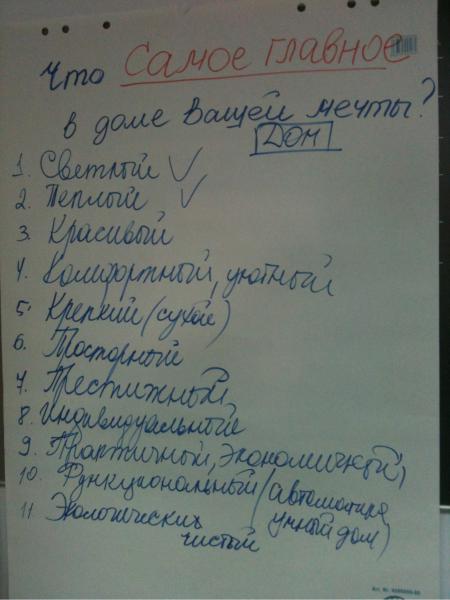 Что Самое главное
в доме вашей мечты?
Дом
1. Светлый ✓
2. Теплый ✓
3. Красивый
4. Комфортный, уютный
5. Крепкий (сухой)
6. Просторный
7. Престижный
8. Индивидуальный
9. Практичный, экономичный
10. Функциональный (автоматика
умный дом)
11 Экологически
чистый